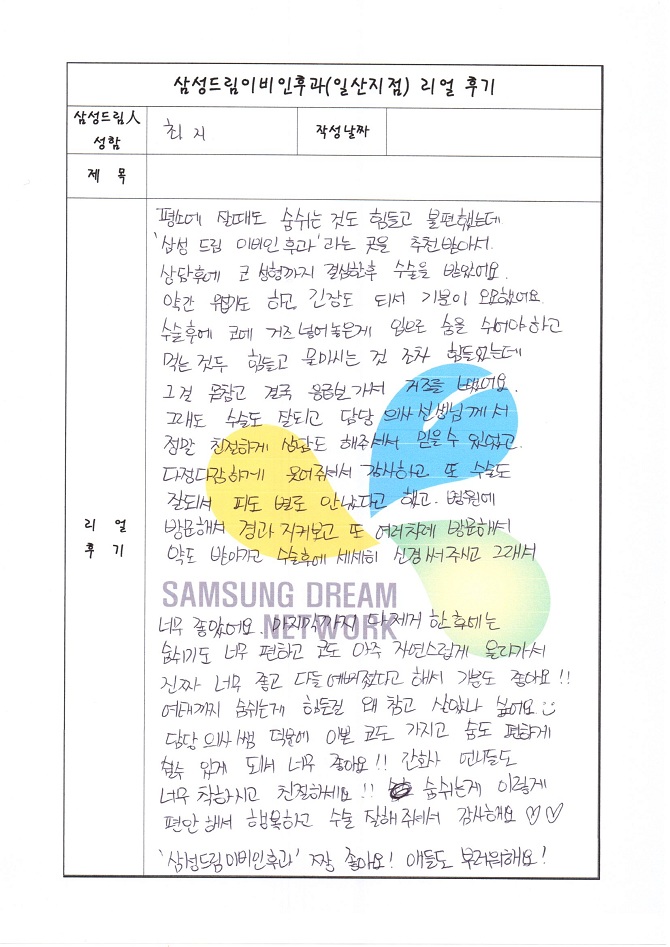 삼성드림이비인후과(일산지점) 리얼 후기
삼성드림人
성함
최 지
작성날짜
제 목
리 얼
후 기
평소에 잘때도 숨쉬는 것도 힘들고 불편했는데
'삼성 드림 이비인후과'라는 곳을 추천받아서.
상담후에 코 성형까지 결심한후 수술을 받았어요.
약간 무섭기도 하고, 긴장도 되서 기분이 오묘했어요
수술후에 코에 거즈 넣어놓은게 입으로 숨을 쉬어야 하고
먹는 것두 힘들고 물마시는 것 조차 힘들었는데
그걸 못참고 결국 응급실 가서 거즈를 뺐어요.
그래도 수술도 잘되고 담당 의사 선생님께서
정말 친절하게 상담도 해주셔서 믿을수 있었고.
다정다감하게 웃어주셔서 감사하고 또 수술도
잘되서 피도 별로 안났다고 했고. 병원에
방문해서 경과 지켜보고 또 여러차례 방문해서
약도 받아가고 수술후에 세세히 신경써주시고 그래서
SAMSUNG DREAM
NETWORK
너무 좋았어요. 마지막까지 다 제거 한 후에는
숨쉬기도 너무 편하고 코도 아주 자연스럽게 올라가서
진짜 너무 좋고 다들 예뻐졌다고 해서 기분도 좋아요!!
여태까지 숨쉬는게 힘든걸 왜 참고 살았나 싶어요
담당 의사쌤 덕분에 이쁜 코도 가지고 숨도 편하게
쉴수 있게 되서 너무 좋아요!! 간호사 언니들도
너무 착하시고 친절하세요!! 숨쉬는게 이렇게
편안해서 행복하고 수술 잘해주셔서 감사해요 ♡♡
'삼성드림이비인후과' 짱 좋아요! 애들도 부러워해요!